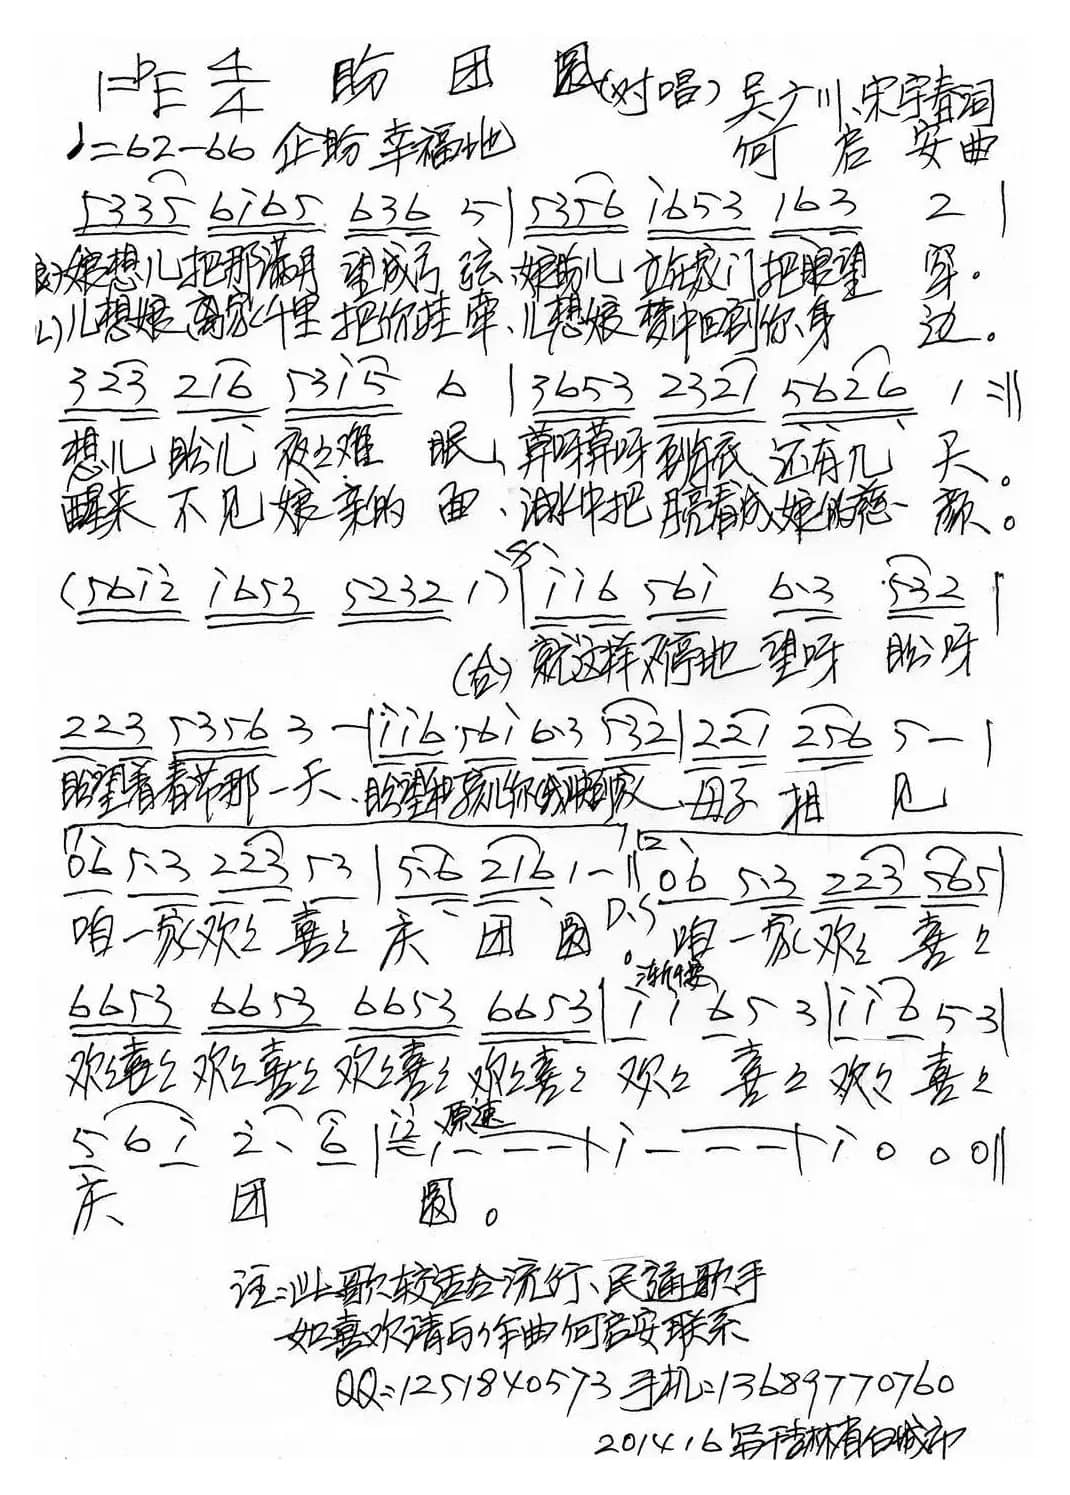 1=♭E 4/4 盼团圆(对唱) 吴广川、宋宇春词
♩=62-66 企盼幸福地 何启安曲
5335 6i65 636 5 | 5356 i653 163 2 |
娘想儿把那满月望成弓弦、娘盼儿立在家门把眼望穿。
儿想娘离家千里把你挂牵、儿想娘梦中回到你身边。
323 216 5315 6 | 3653 2321 5626 1 :||
想儿盼儿夜々难眠、算呀算呀到年底还有几天。
醒来不见娘亲的面、泪水中把月亮看成娘的慈颜。
(56i2 i653 5232 1) | ii6 56i 6·3 532 |
(合)就这样不停地望呀盼呀
223 5356 3 - | ii6·56i 6·3 532 | 221 256 5 - |
盼望着春节那一天、盼望 孩儿你 家、母子相见
06 5·3 223 53 | 5·6 216 1 - || 06 5·3 223 565 |
咱一家欢々喜々庆团圆 D.S. 咱一家欢々喜々
渐慢
6653 6653 6653 6653 | i i 6 5 3 | i i 6 5 3 |
欢々喜々欢々喜々欢々喜々欢々喜々欢々喜々欢々喜々
原速
5 6 i 2· 6 | i2 i - - - | i - - - | i 0 0 0 ||
庆团圆。
注:此歌较适合流行、民通歌手
如喜欢请与作曲何启安联系
QQ:1251840573 手机:13689770760
2014.1.6写于吉林省白城市